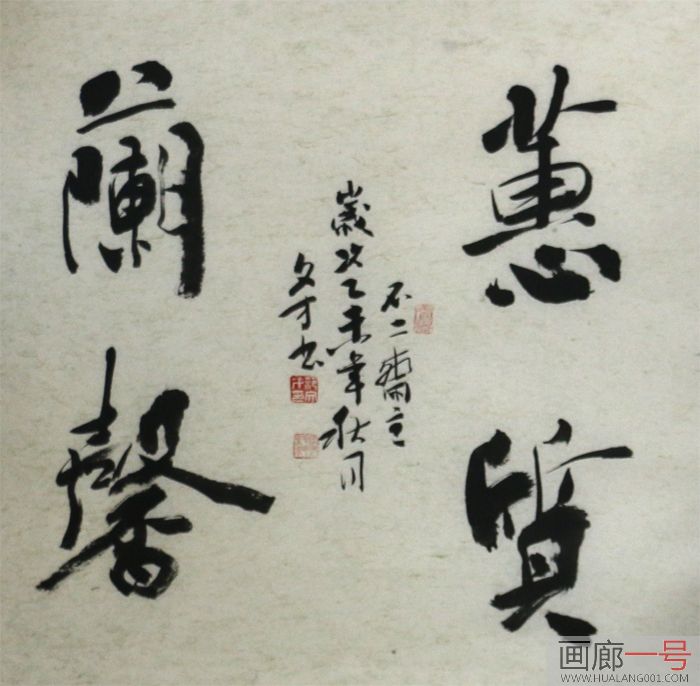 蕙質
不二齋主
歲次乙未年秋月
文才书
蘭馨
画廊一号
WWW.HUALANG001.COM